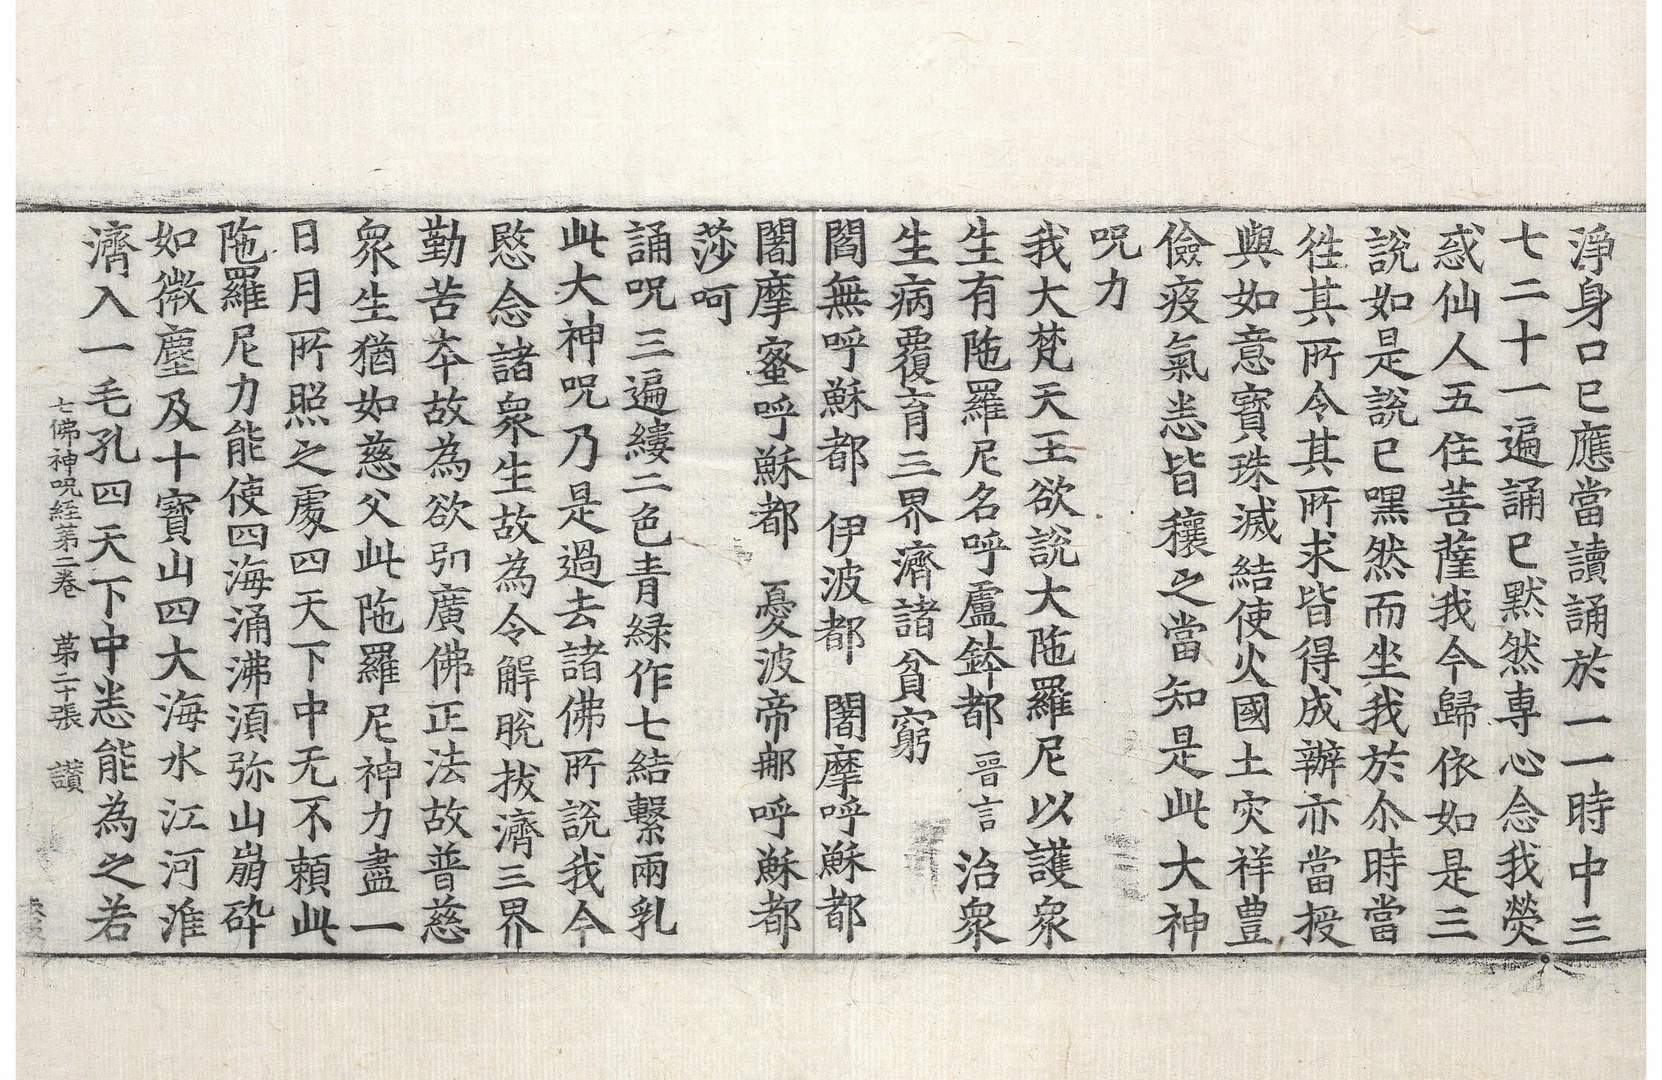 淨身口已應當讀誦於一一時中三
七二十一遍誦已默然専心念我熒
惑仙人五住菩薩我今歸依如是三
說如是說已嘿然而坐我於尒時當
徃其所令其所求皆得成辦亦當授
與如意寶珠滅結使火國土灾祥豊
儉疫氣恙皆穰之當知是此大神
呪力
我大梵天王欲說大陁羅尼以護衆
生有陁羅尼名呼盧鉢都 晉言 治衆
生病覆育三界濟諸貧窮
閻無呼穌都 伊波都 闍摩呼穌都
闍摩蜜呼穌都 憂波帝𨚗呼穌都
莎呵
誦呪三遍縷二色青緑作七結繫兩乳
此大神呪乃是過去諸佛所說我今
愍念諸衆生故為令解脫拔濟三界
勤苦夲故為欲引廣佛正法故普慈
衆生猶如慈父此陁羅尼神力盡一
日月所照之處四天下中无不頼此
陁羅尼力能使四海涌沸湏弥山崩碎
如微塵及十寶山四大海水江河淮
濟入一毛孔四天下中恙能為之若
七佛神呪経苐二卷 苐二十張 讃